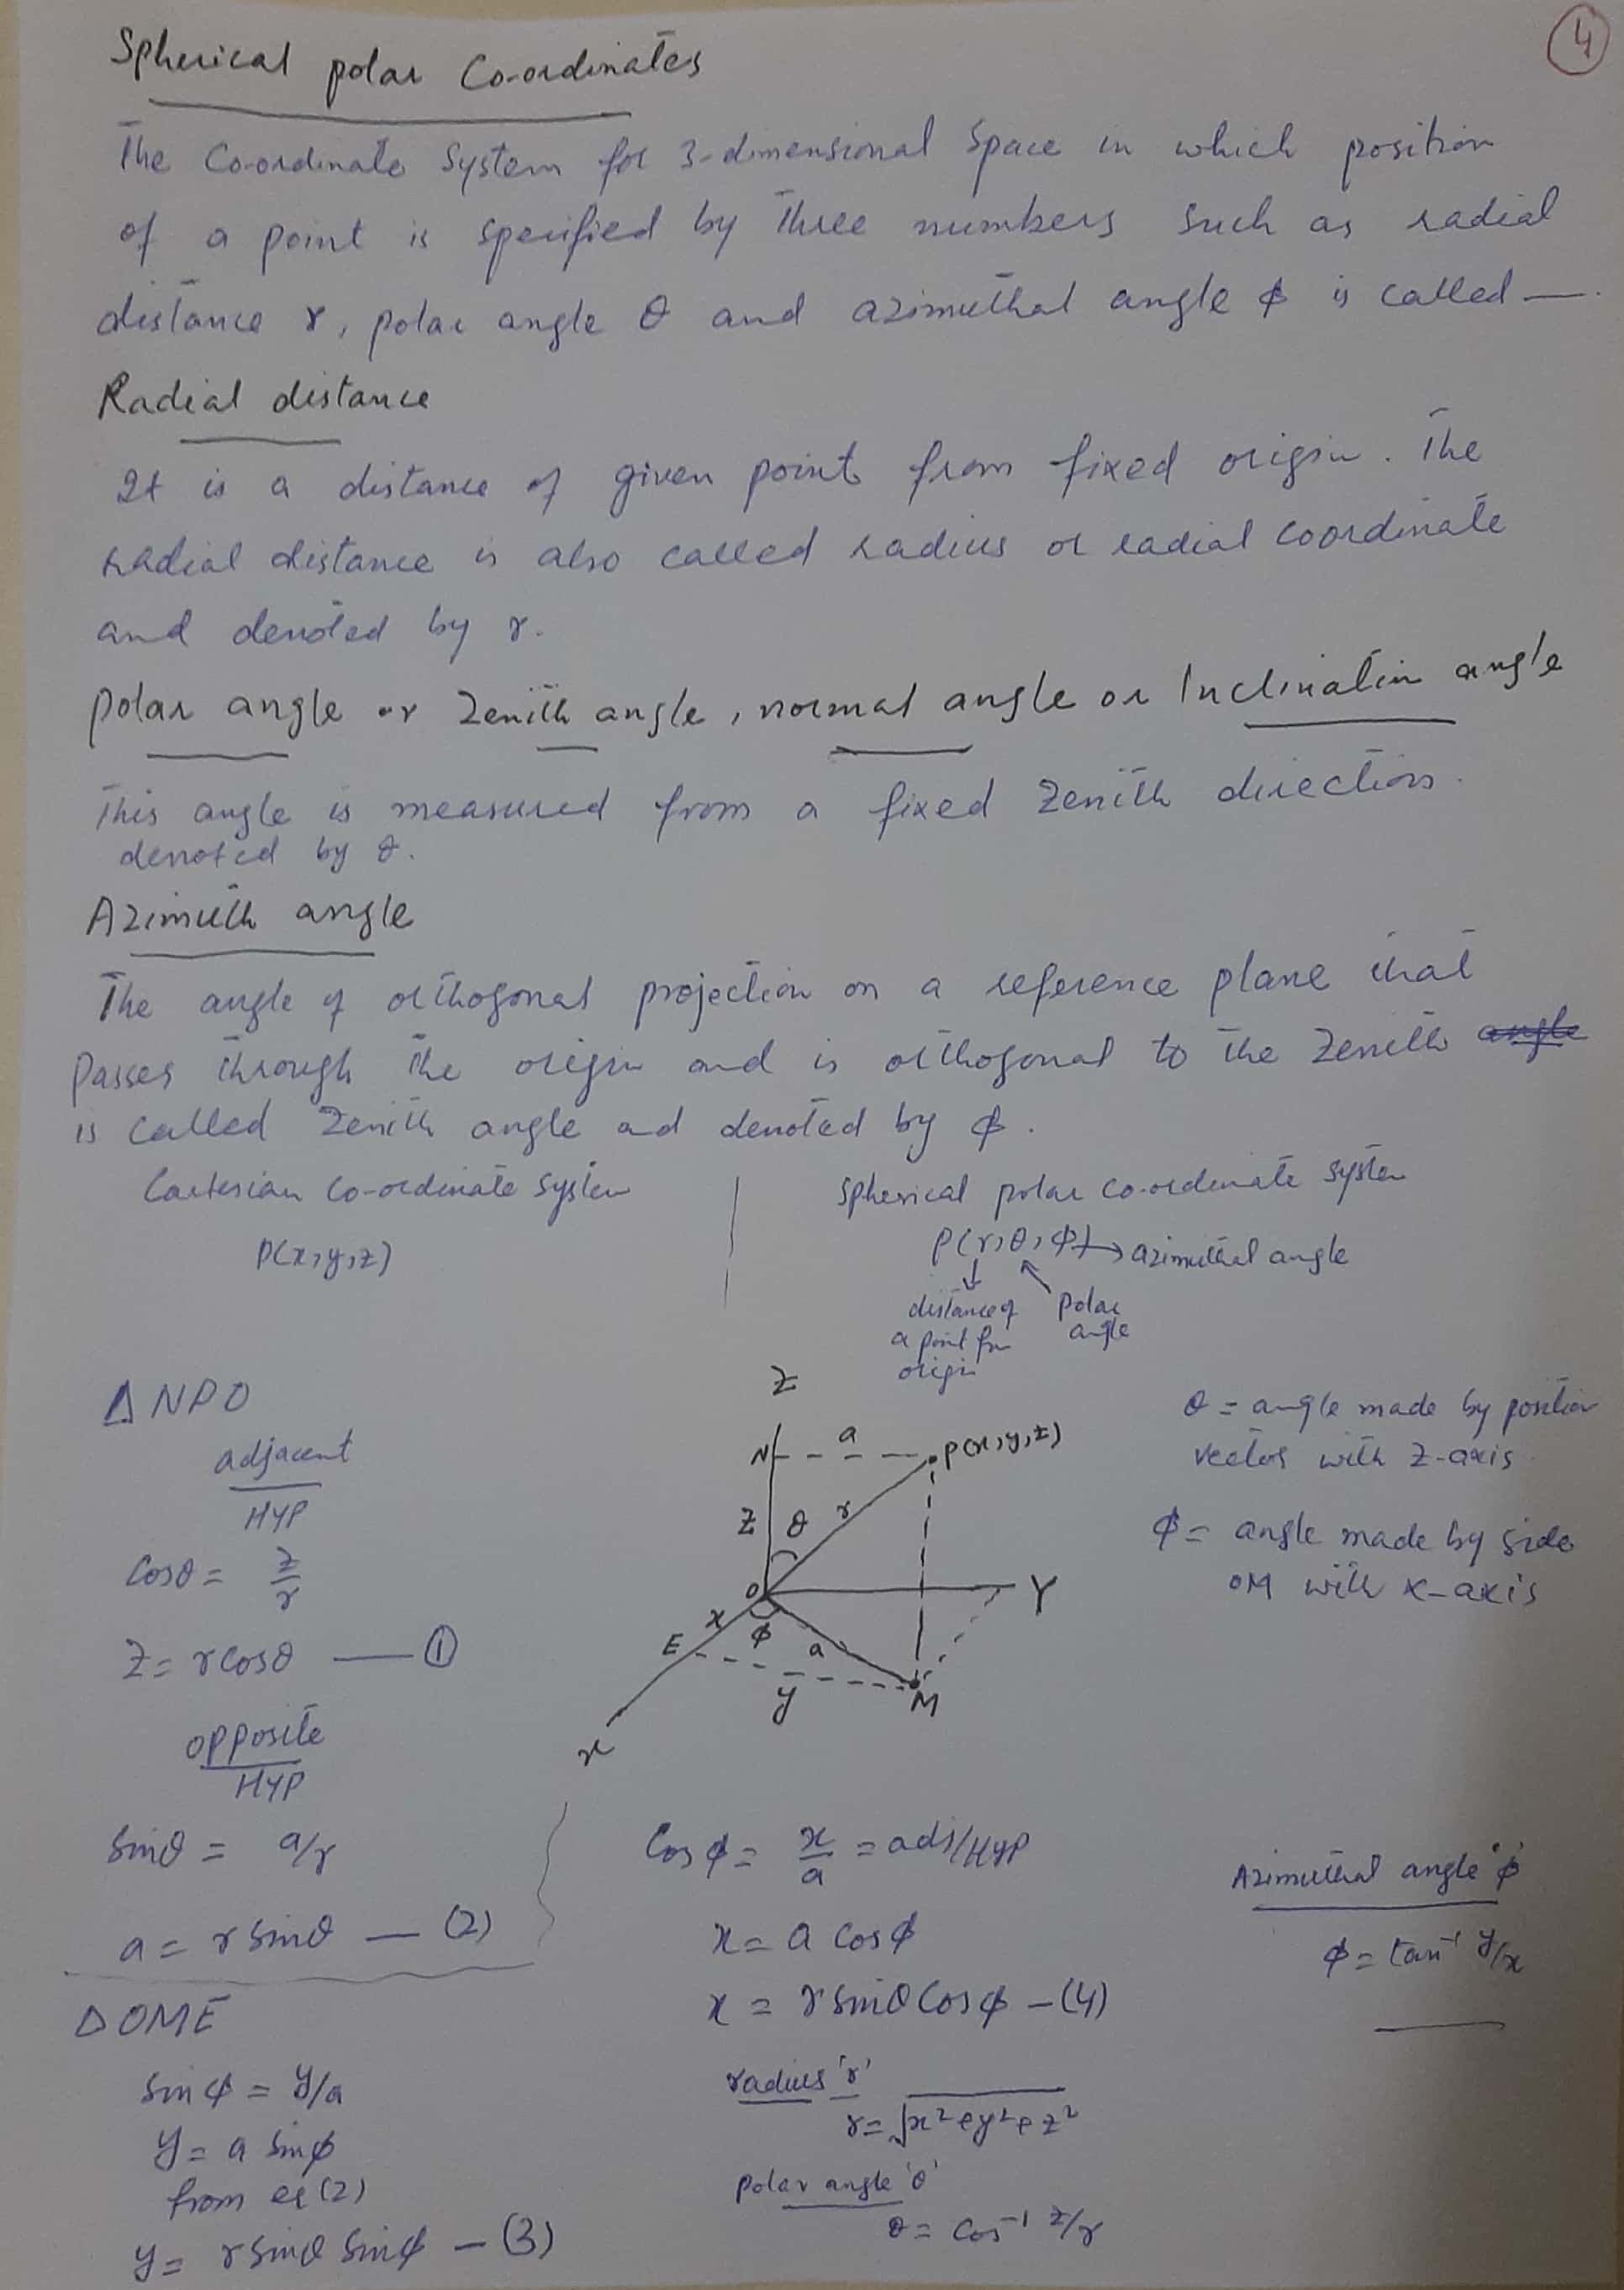 4
Spherical polar Co-ordinates
The Co-ordinate System for 3-dimensional Space in which position
of a point is specified by three numbers such as radial
distance r, polar angle θ and azimuthal angle ϕ is called —.
Radial distance
It is a distance of given point from fixed origin. The
radial distance is also called radius or radial coordinate
and denoted by r.
polar angle or Zenith angle, normal angle or Inclination angle
This angle is measured from a fixed Zenith direction.
denoted by θ.
Azimuth angle
The angle of orthogonal projection on a reference plane that
Passes through the origin and is orthogonal to the Zenith angle
is called Zenith angle ad denoted by ϕ.
Cartesian Co-ordinate System
P(x,y,z)
Spherical polar co-ordinate system
P(r,θ,ϕ)→azimuthal angle
distance of
a point fm
origin
Polar
angle
Δ NPO
adjacent
HYP
Cosθ = z/r
Z = rCosθ — ①
opposite
HYP
Sinθ = a/r
a = rSinθ — (2)
Z
N
a
P(x,y,z)
Z
θ
r
O
Y
x
ϕ
a
E
y
M
x
θ = angle made by position
vector with z-axis
ϕ = angle made by side
OM with x-axis
Δ OME
Sinϕ = y/a
y = a Sinϕ
from eq (2)
y = rSinθ Sinϕ — (3)
Cosϕ = x/a = adj/HYP
x = a Cosϕ
x = rSinθ Cosϕ — (4)
radius 'r'
r = √x²+y²+z²
Polar angle 'θ'
θ = Cos⁻¹ z/r
Azimuthal angle 'ϕ'
ϕ = tan⁻¹ y/x